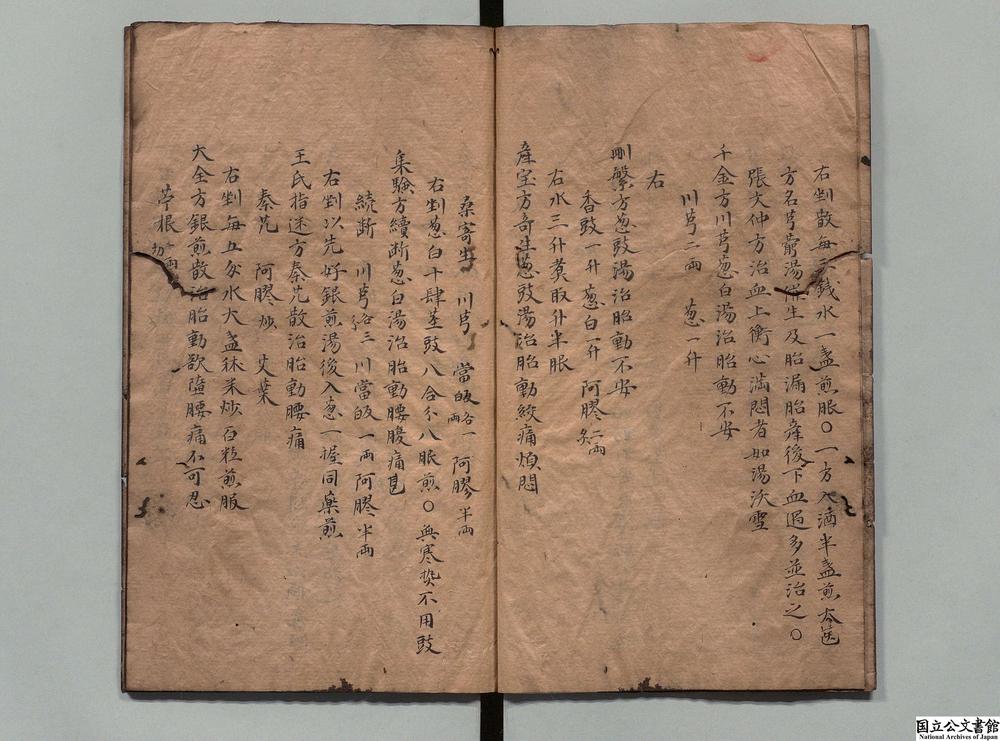 右剉散每三錢水一盞煎服〇一方入酒半盞煎
方名芎藭湯催生及胎漏胎産後下血過多並治之〇
張文仲方治血上衝心満悶者如湯沃雪
千金方川芎葱白湯治胎動不安
川芎二両 葱一升
右
刪繁方葱豉湯治胎動不安
香豉一升 葱白一升 阿膠二両炙
右水三升煑取升半服
産宝方寄生葱豉湯治胎動絞痛煩悶
桑寄生 川芎 當皈各一両 阿膠半両
右剉葱白十肆茎豉八合分八服煎〇無寒熱不用豉
集驗方續断葱白湯治胎動腰腹痛
続断 川芎各三 川當皈一両 阿膠半両
右剉以先好銀煎湯後入葱一握同藥煎
王氏指迷方秦艽散治胎動腰痛
秦艽 阿膠炒 艾葉
右剉每五匁水大盞秫米炒百粒煎服
大全方銀煎散治胎動欲墮腰痛不可忍
苧根二両切